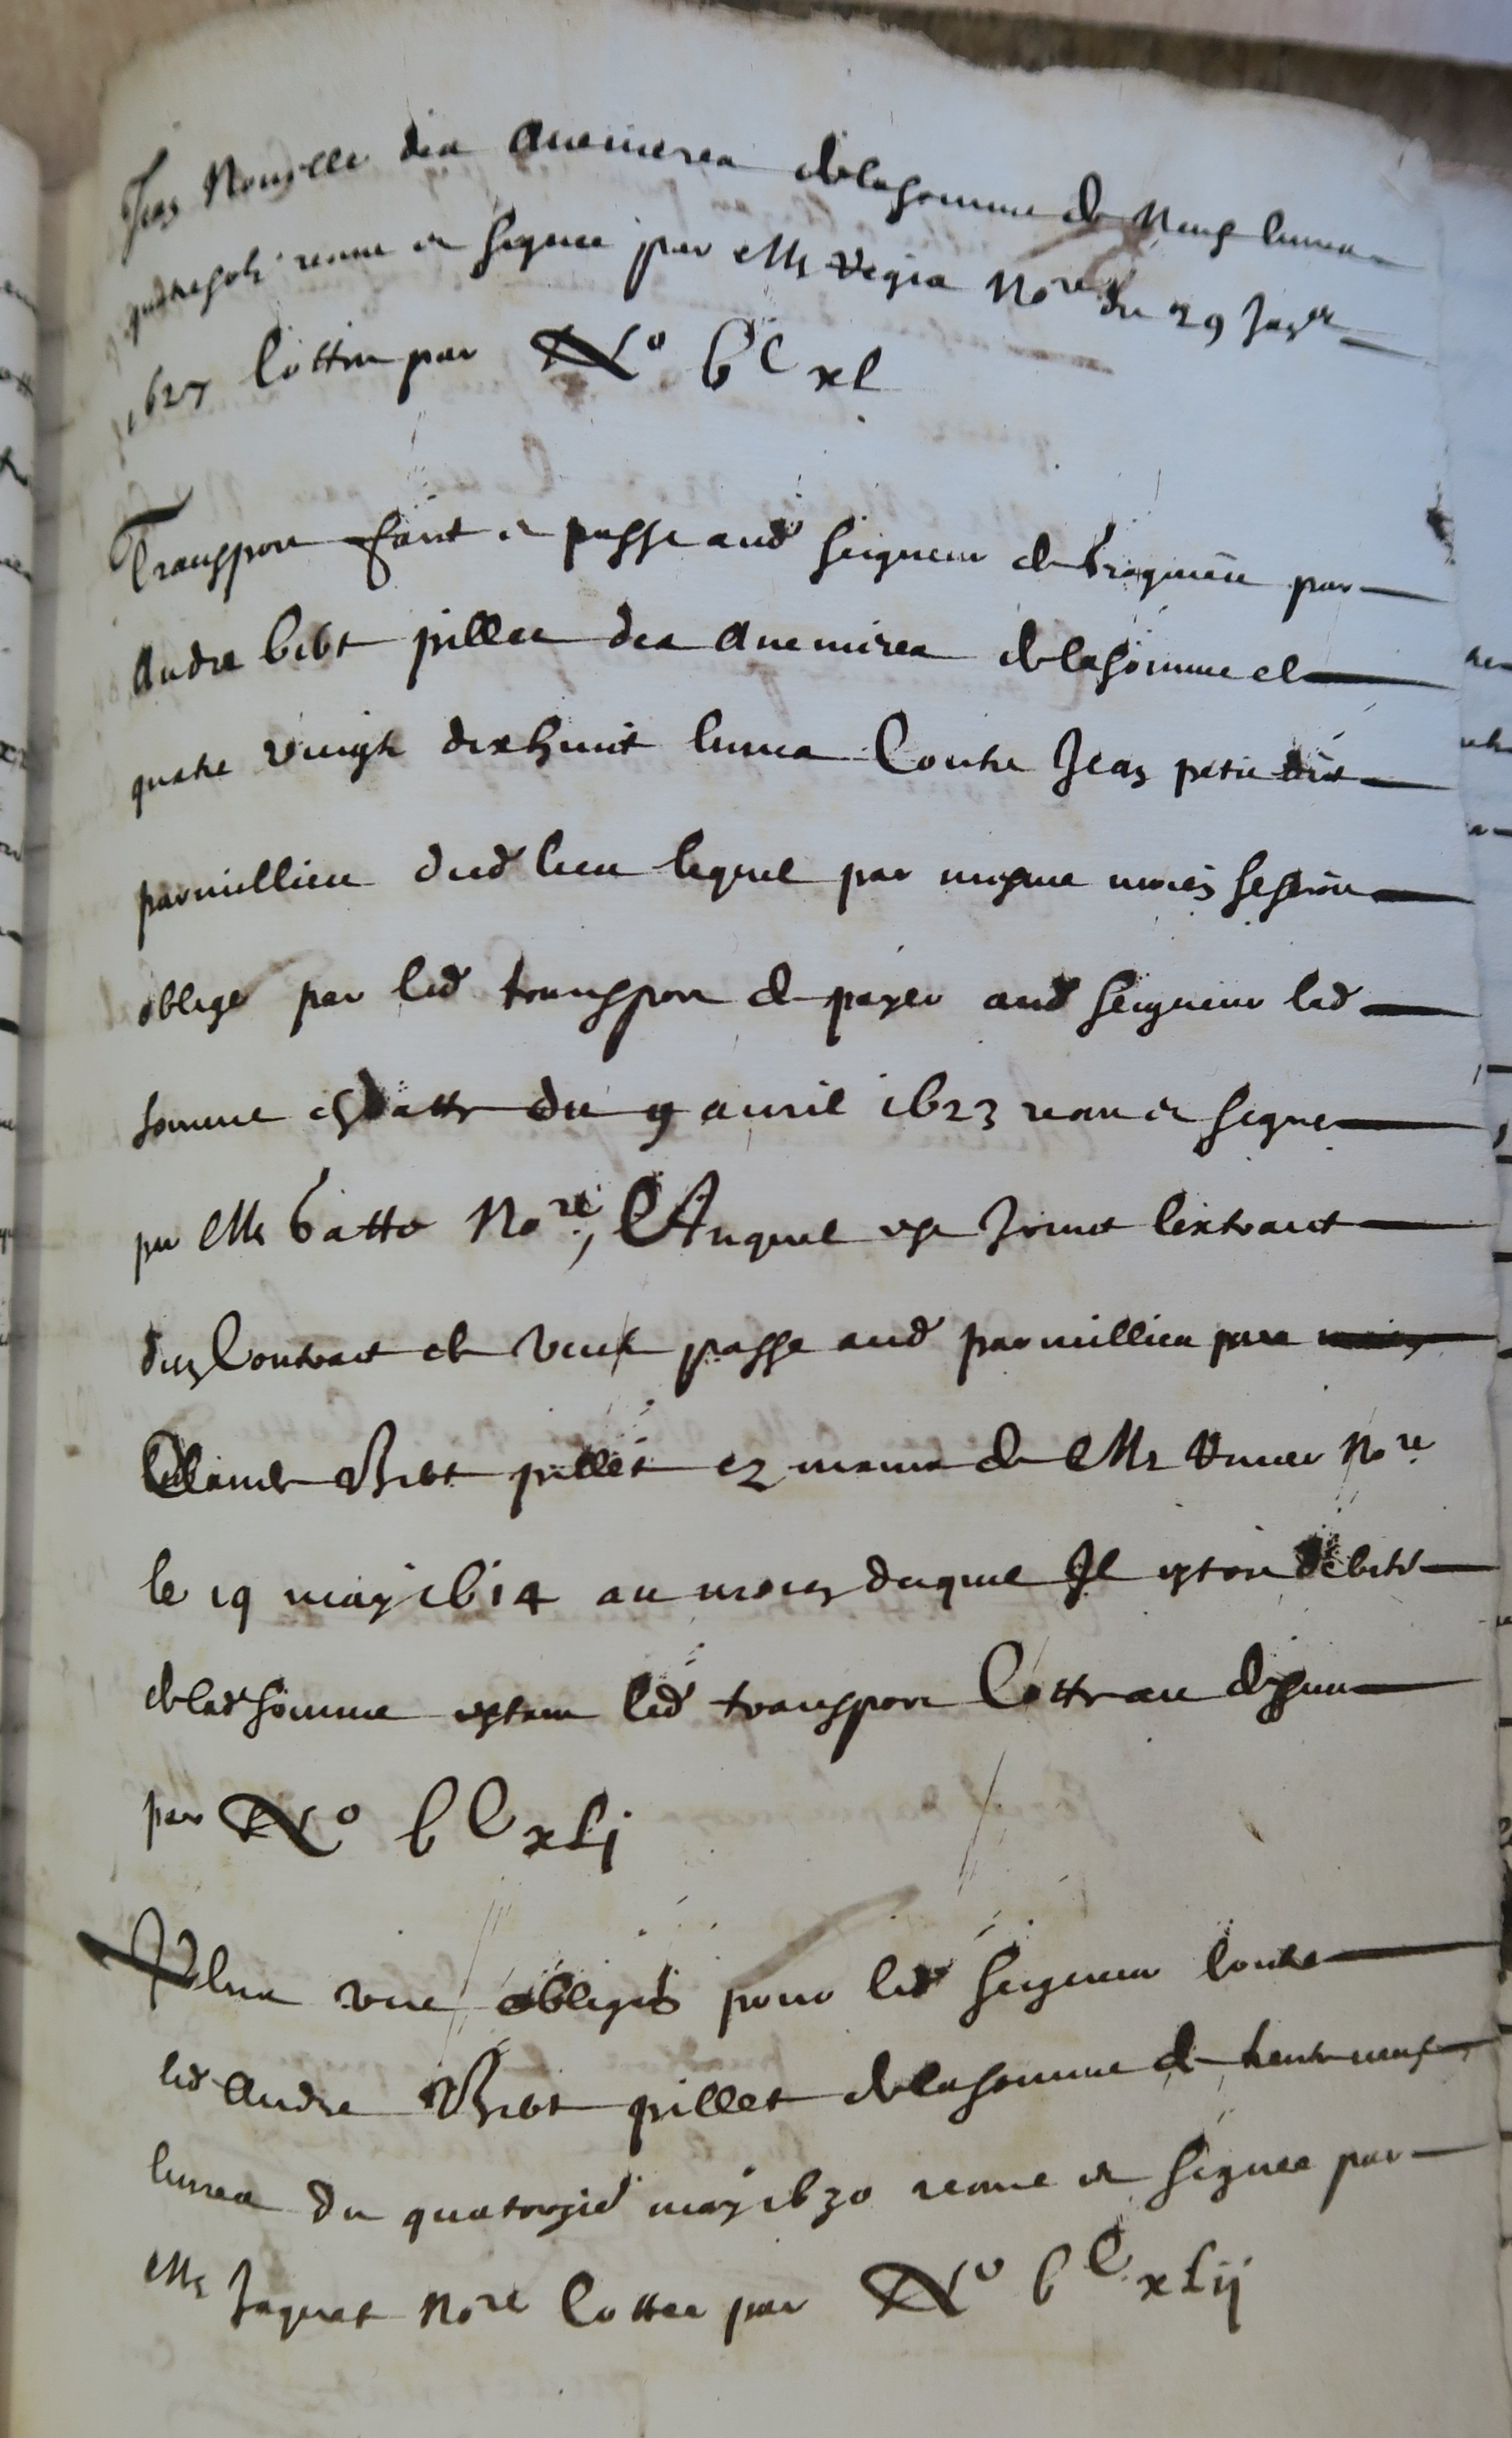 Jean Nouvelle des Avenieres de la somme de neuf livres
quatre solz receue et signee par Me Vegia Nore du 29 Janer
1627 Cottee par No bC xl
Transport faict et passe aud seigneur de par
Andre bibt pillet des Avenieres de la somme de
quatre vingtz dixhuict livres Contre Jean petit dit
parmillieu dud lieu lequel par mesme moien se seroit
oblige par led transport de payer aud seigneur lad
somme en datte du 9 avril 1623 receu et signe
par Me batto Nore, Auquel est Joinct l'extraict
du Contract de vente passe aud parmillieu par
Claude Bibt pillet ez mains de Me Nore
le 19 may 1614 au moien duquel Il estoit debiteur
de lad somme estant led transport Cotte au dessus
par No bC xlj
Plus une obligé pour led seigneur Contre
led Andre Bibt pillet de la somme de trente neuf
livres du quatorzie may 1630 receue et signee par
Me Jaquet Nore Cottee par No bC xlij